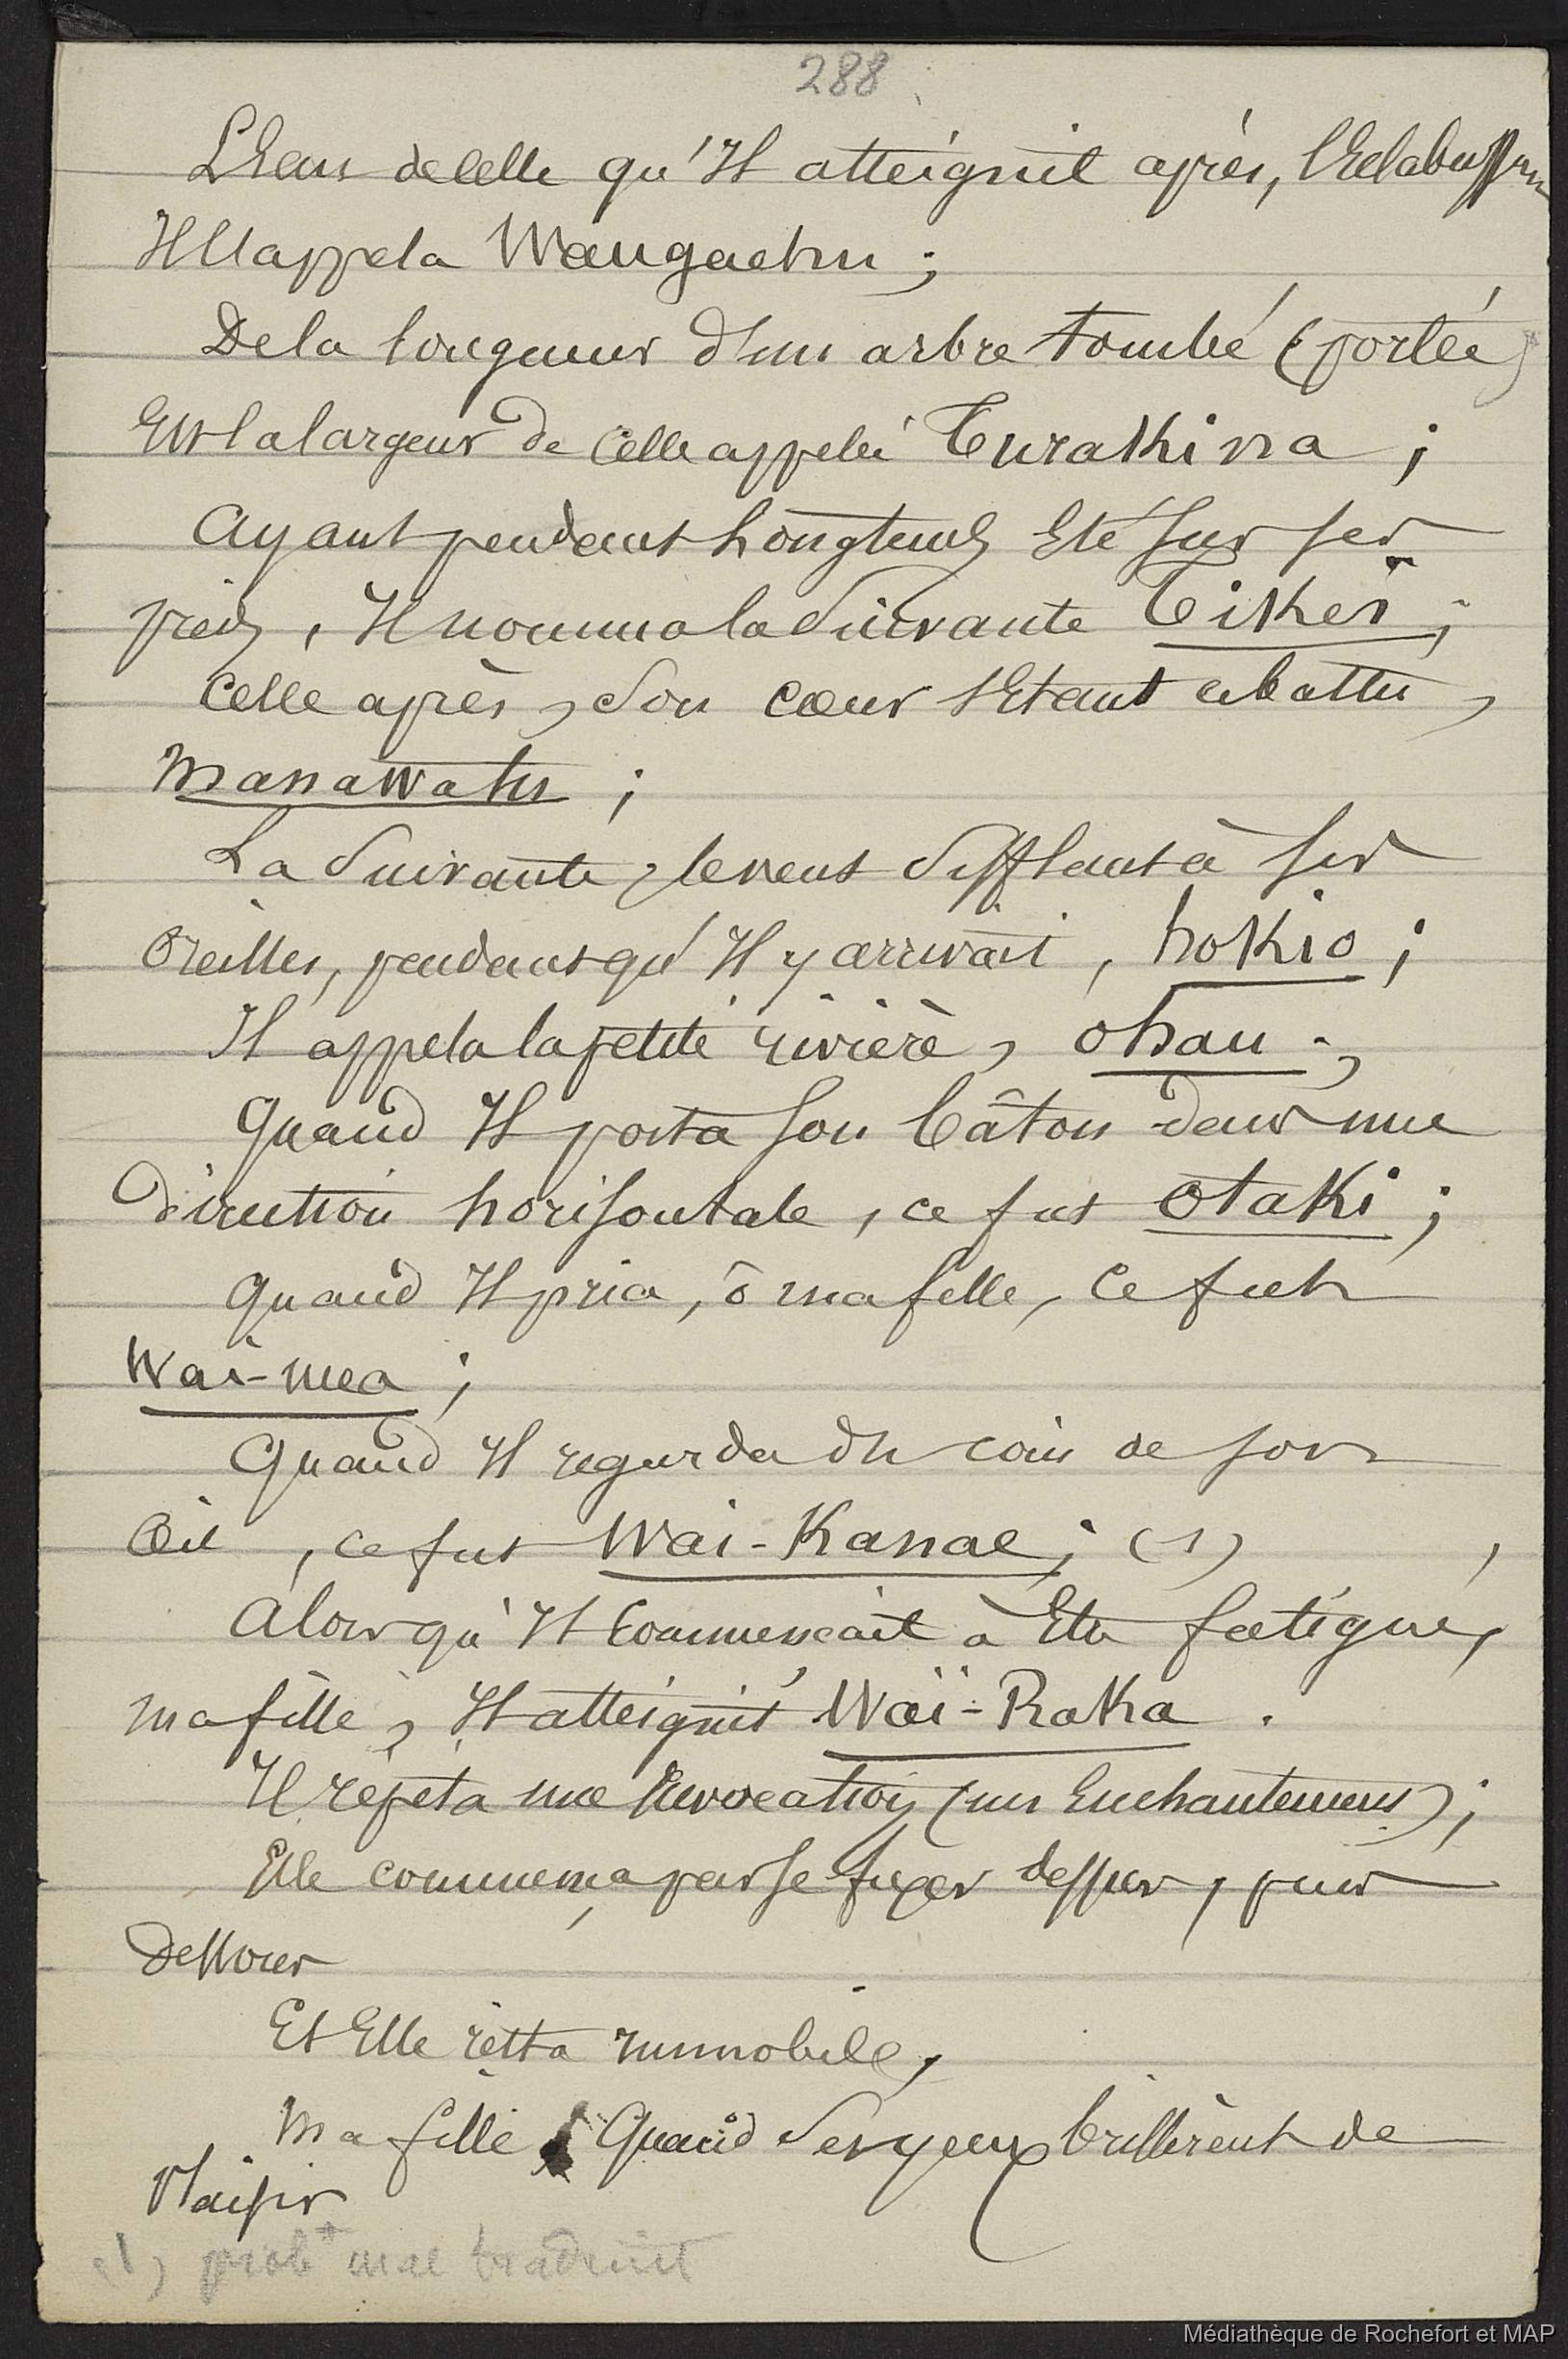 288
L'Eau de celle qu'Il atteignit après, l'Eclaboussa
Il l'appela Wangaehu ;
De la longueur d'un arbre tombé (portée)
Est la largeur de Celle appelée Turakina ;
Ayant pendant longtemps Eté sur ses
pieds, Il nomma la Suivante Tikei ;
Celle après, Son cœur s'Etant abattu,
Manawatu ;
La Suivante, le vent Sifflant à ses
Oreilles, pendant qu'Il y arrivait, hokio ;
Il appela la petite rivière, ohau ;
Quand Il porta son bâton dans une
Direction horisontale, ce fut otaki ;
Quand Il pria, ô ma fille, Ce fut
Wai-mea ;
Quand Il regarda du coin de son
Œil, ce fut Wai-Kanae ; (1)
Alors qu'Il Commençait à Etre fatigué,
ma fille, Il atteignit Waï-Raka .
Il répéta une Invocation (un Enchantement) ;
Elle commença par se fixer dessus, puis
dessous
Et Elle resta immobile,
Ma fille, Quand Ses yeux brillèrent de
Plaisir
(1) probt mal traduit
Médiathèque de Rochefort et MAP